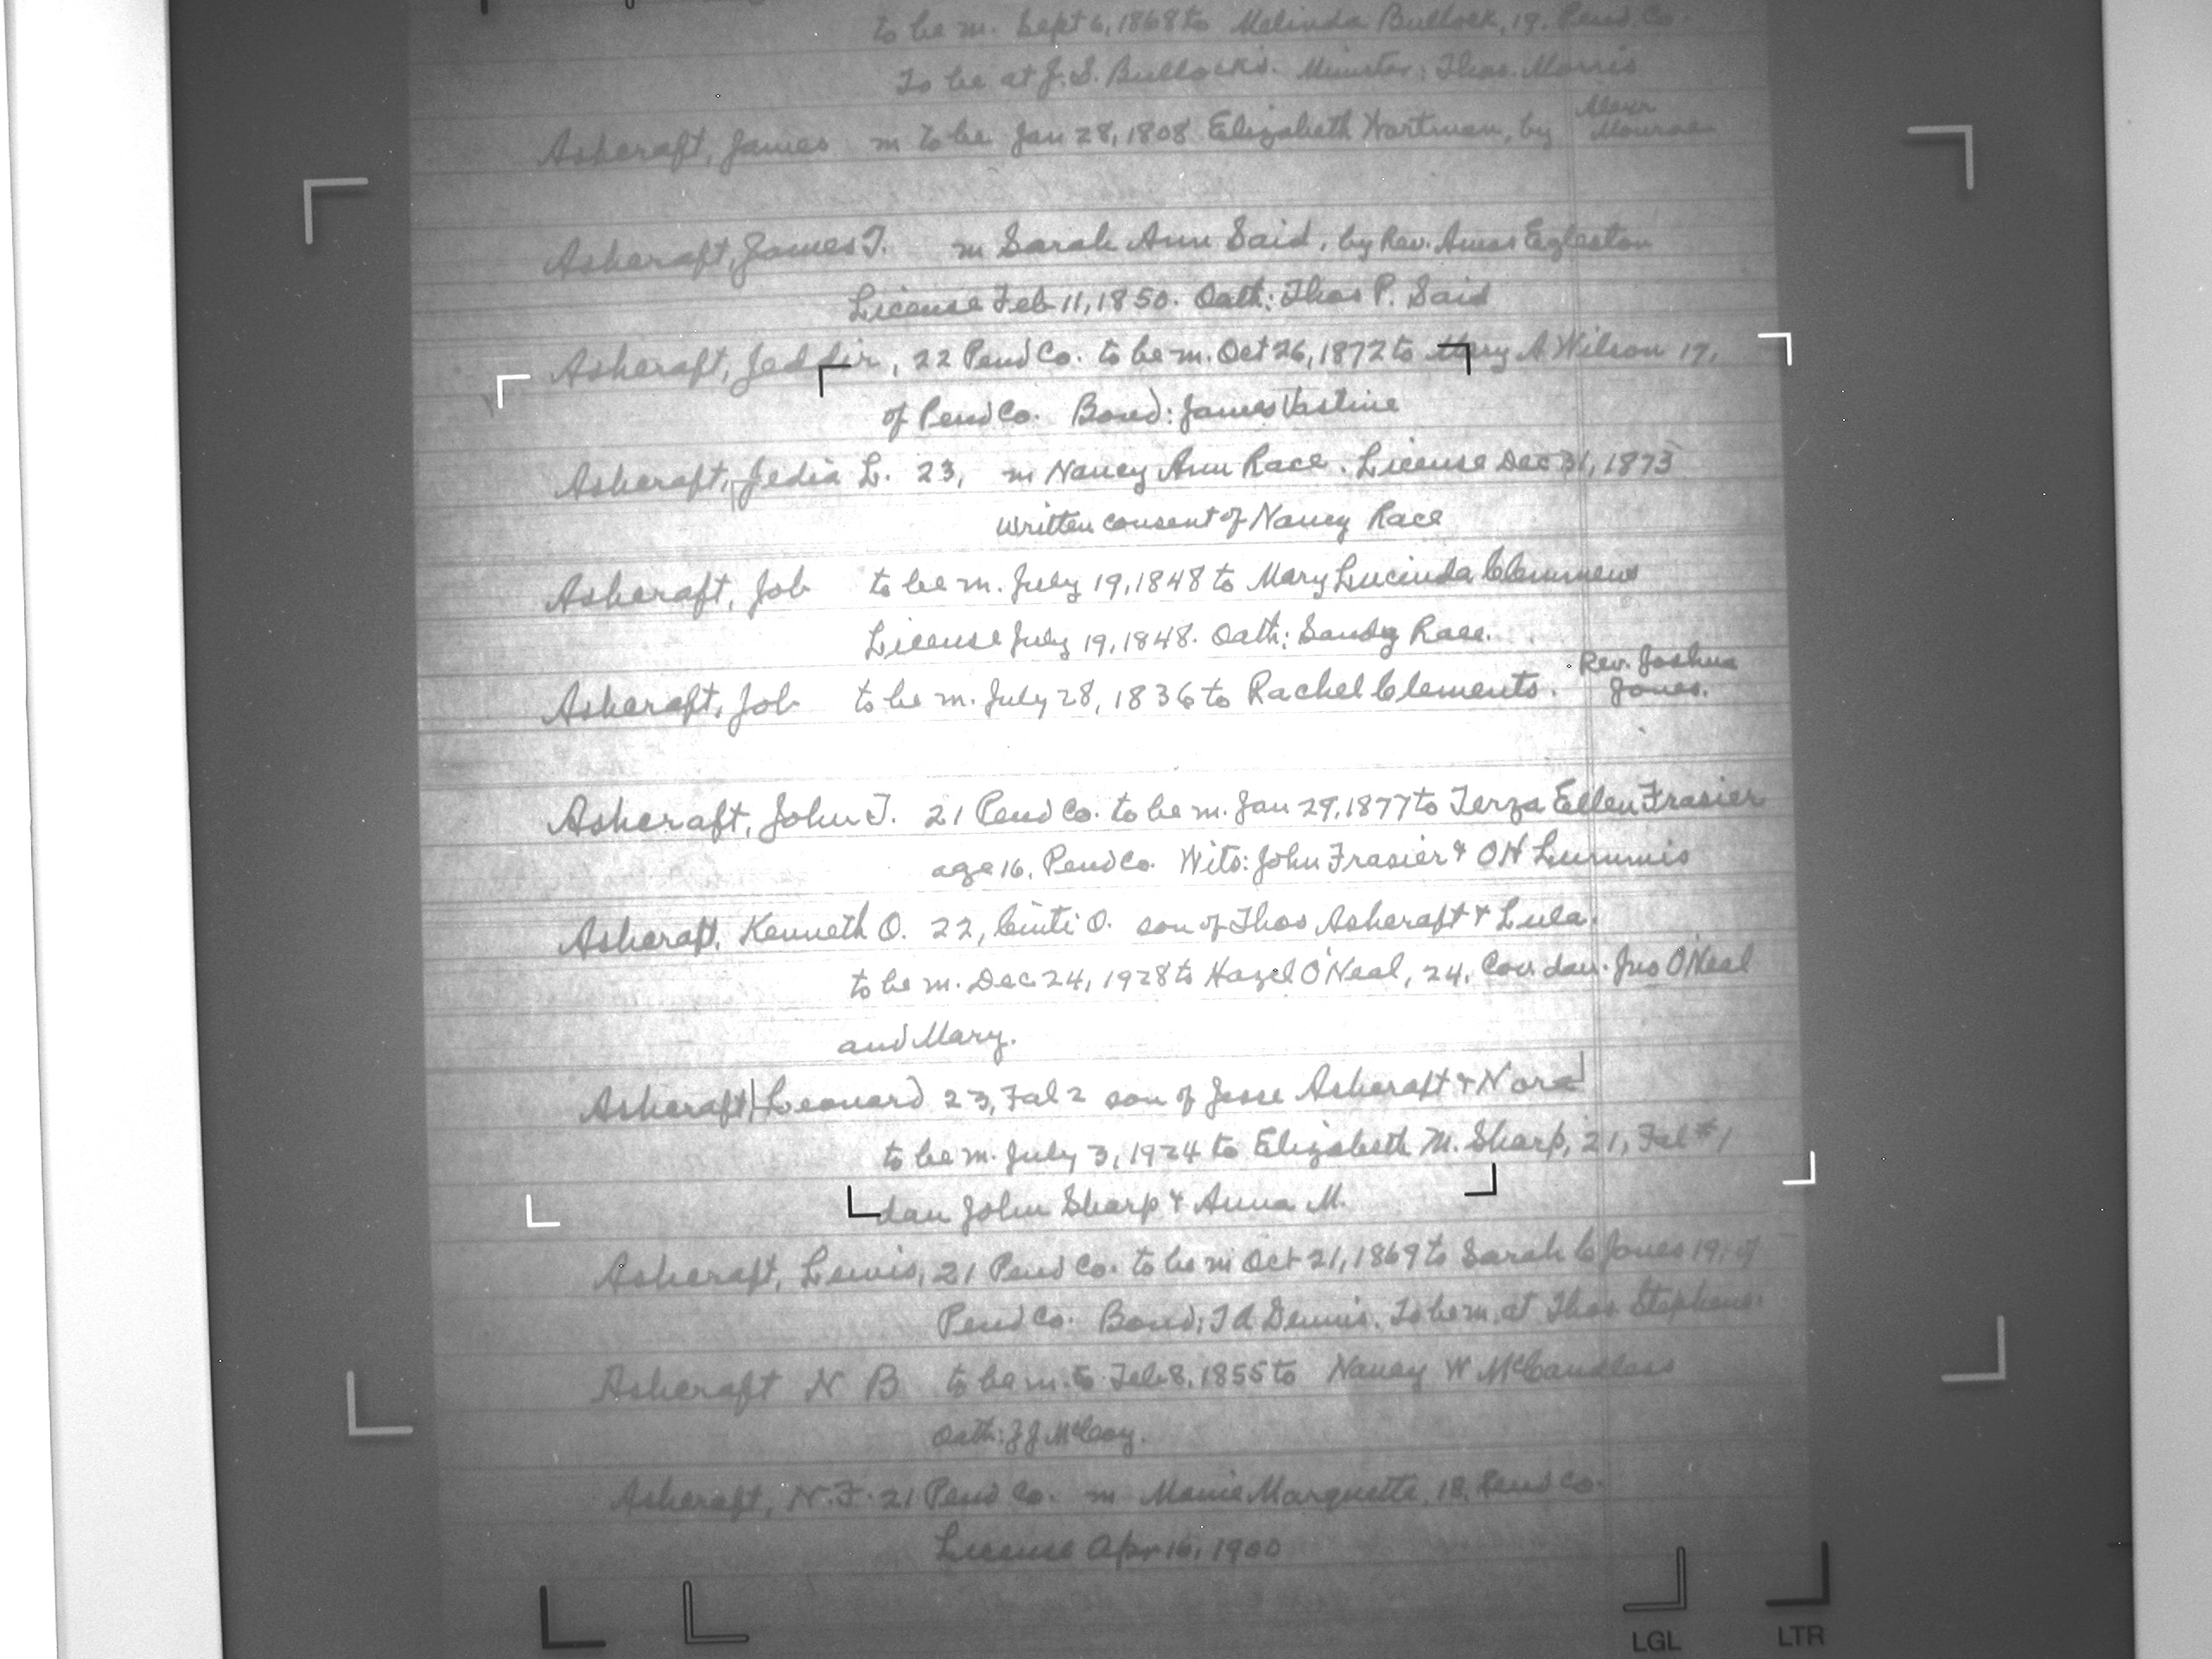 to be m. Sept 6, 1868 to Melinda Bullock, 19. Pend. Co.
To be at J. S. Bullock's. Minister: Thos. Morris
Ashcraft, James m to be Jan 28, 1808 Elizabeth Hartman, by Alexr Monroe
Ashcraft, James T. m Sarah Ann Said, by Rev. Amos Egleston
License Feb 11, 1850. Oath: Thos P. Said
Ashcraft, 22 Pend Co. to be m. Oct 26, 1872 to Mary A Wilson 17,
of Pend Co. Bond: James Vastine
Ashcraft, Jedia L. 23, m Nancy Ann Race. License Dec 31, 1873
Written consent of Nancy Race
Ashcraft, Job to be m. July 19, 1848 to Mary Lucinda Clemmens
License July 19, 1848. Oath: Sandy Race.
Ashcraft, Job to be m. July 28, 1836 to Rachel Clements. Rev. Joshua Jones.
Ashcraft, John T. 21 Pend Co. to be m. Jan 29, 1877 to Terza Ellen Frasier
age 16, Pend Co. Wits: John Frasier & O H Lummis
Ashcraft, Kenneth O. 22, Cinti O. son of Thos Ashcraft & Lula.
to be m. Dec 24, 1928 to Hazel O'Neal, 24, Cov. dau. Jno O'Neal
and Mary.
Ashcraft Leonard 23, Fal 2 son of Jesse Ashcraft & Nora
to be m. July 3, 1924 to Elizabeth M. Sharp, 21, Fal #1
dau John Sharp & Anna M.
Ashcraft, Lewis, 21 Pend Co. to be m Oct 21, 1869 to Sarah C Jones 19, of
Pend Co. Bond: T A Dennis. To be m. at Thos Stephens.
Ashcraft N B to be m. to Feb 8, 1855 to Nancy W McCandless
Oath: McCoy.
Ashcraft, N. F. 21 Pend Co. m Mamie Marquette, 18, Pend Co.
License Apr 16, 1900
LGL LTR